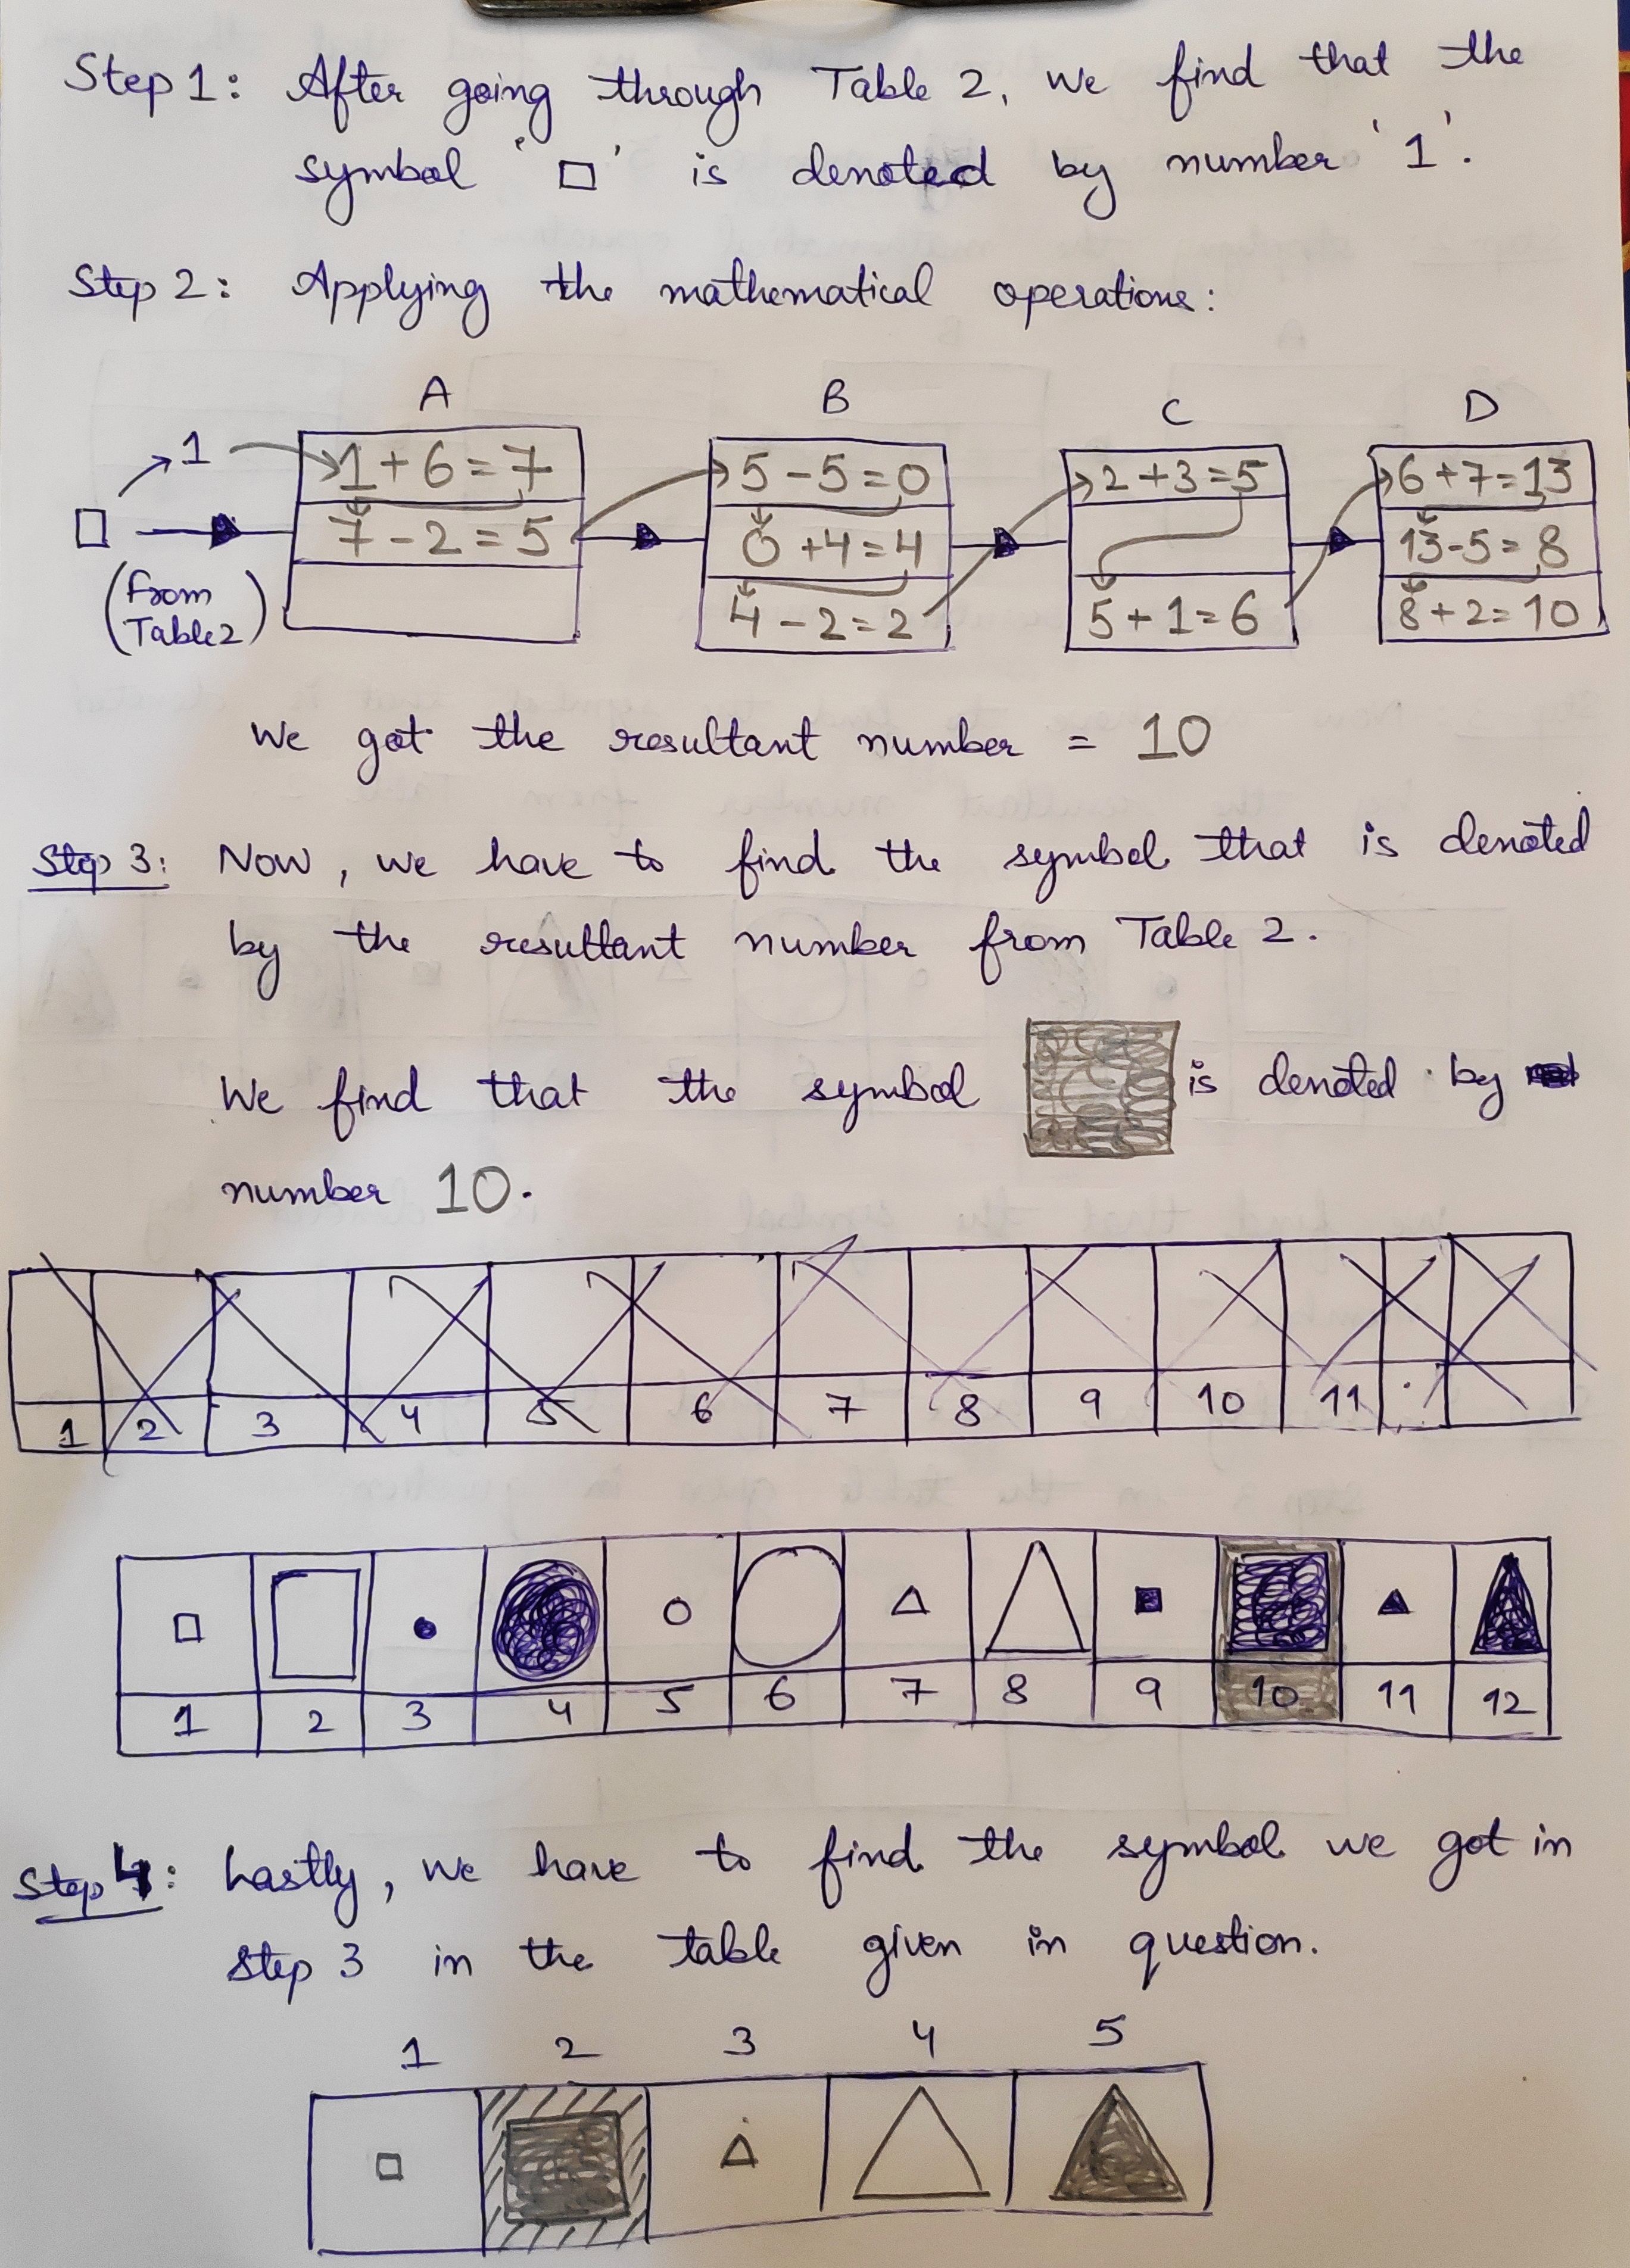 Step 1: After going through Table 2, we find that the
symbol '□' is denoted by number '1'.
Step 2: Applying the mathematical operations:
A B C D
1
1 + 6 = 7
7 - 2 = 5
5 - 5 = 0
0 + 4 = 4
4 - 2 = 2
2 + 3 = 5
5 + 1 = 6
6 + 7 = 13
13 - 5 = 8
8 + 2 = 10
(from
Table 2)
We got the resultant number = 10
Step 3: Now, we have to find the symbol that is denoted
by the resultant number from Table 2.
We find that the symbol is denoted by
number 10.
1 2 3 4 5 6 7 8 9 10 11
1 2 3 4 5 6 7 8 9 10 11 12
Step 4: Lastly, we have to find the symbol we got in
step 3 in the table given in question.
1 2 3 4 5